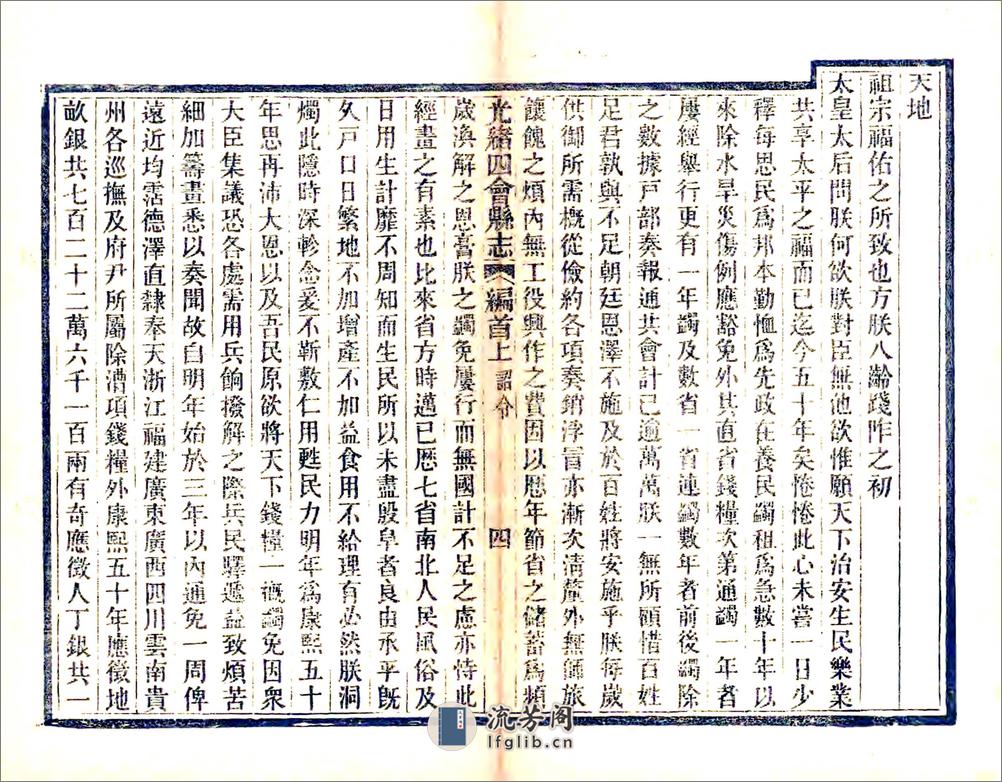 天地
祖宗福佑之所致也方朕八齡踐阼之初
太皇太后問朕何欲朕對臣無他欲惟願天下治安生民樂業
共享太平之福而已迄今五十年矣惓惓此心未嘗一日少
釋每思民爲邦本勤恤爲先政在養民蠲租爲急數十年以
來除水旱災傷例應豁免外其直省錢糧次第通蠲一年者
屢經舉行更有一年蠲及數省一省連蠲數年者前後蠲除
之數據戶部奏報通共會計已逾萬萬朕一無所顧惜百姓
足君孰與不足朝廷恩澤不施及於百姓將安施乎朕每歲
供御所需概從儉約各項奏銷浮冒亦漸次清釐外無師旅
饟餽之煩內無工役興作之費因以歷年節省之儲蓄爲頻
光緒四會縣志 編首上 詔令 四
歲渙解之恩膏朕之蠲免屢行而無國計不足之慮亦恃此
經畫之有素也比來省方時邁已歷七省南北人民風俗及
日用生計靡不周知而生民所以未盡殷阜者良由承平既
久戶口日繁地不加增產不加益食用不給理有必然朕洞
燭此隱時深軫念爰不靳敷仁用甦民力明年爲康熙五十
年思再沛大恩以及吾民原欲將天下錢糧一槪蠲免因衆
大臣集議恐各處需用兵餉撥解之際兵民驛遞益致煩苦
細加籌畫悉以奏聞故自明年始於三年以內通免一周俾
遠近均霑德澤直隸奉天浙江福建廣東廣西四川雲南貴
州各巡撫及府尹所屬除漕項錢糧外康熙五十年應徵地
畝銀共七百二十二萬六千一百兩有奇應徵人丁銀共一
流芳閣
lfglib.cn